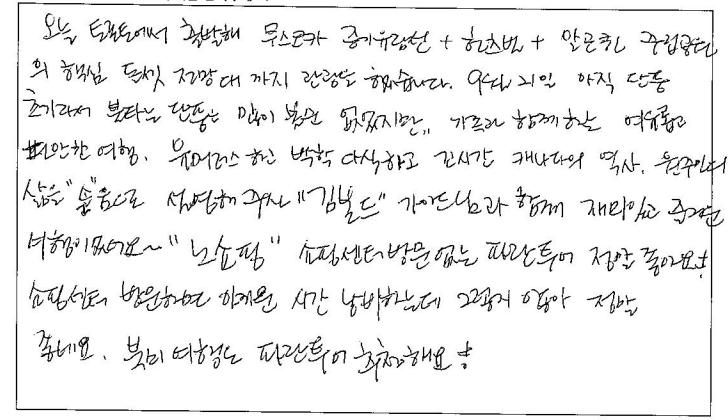 오늘 토론토에서 출발해 무스코카 증기유람선 + 헌츠빌 + 알곤퀸 주립공원
의 핵심 도셋 전망대 까지 관광을 했습니다. 9월 21일 아직 단풍
초기라서 불타는 단풍은 많이 볼순 없었지만,, 가족과 함께하는 여유롭고
편안한 여행. 유머러스 하고 박학다식하고 긴시간 캐나다의 역사. 원주민의
삶을 "숨"음으로 설명해 주신 "김빌드" 가이드님과 함께 재미있고 즐거운
여행이었어요~ "노쇼핑" 쇼핑센터방문없는 파란투어 정말 좋아요!
쇼핑센터 방문하면 아까운 시간 낭비하는데 그렇지 않아 정말
좋네요. 북미 여행도 파란투어 추천해요!